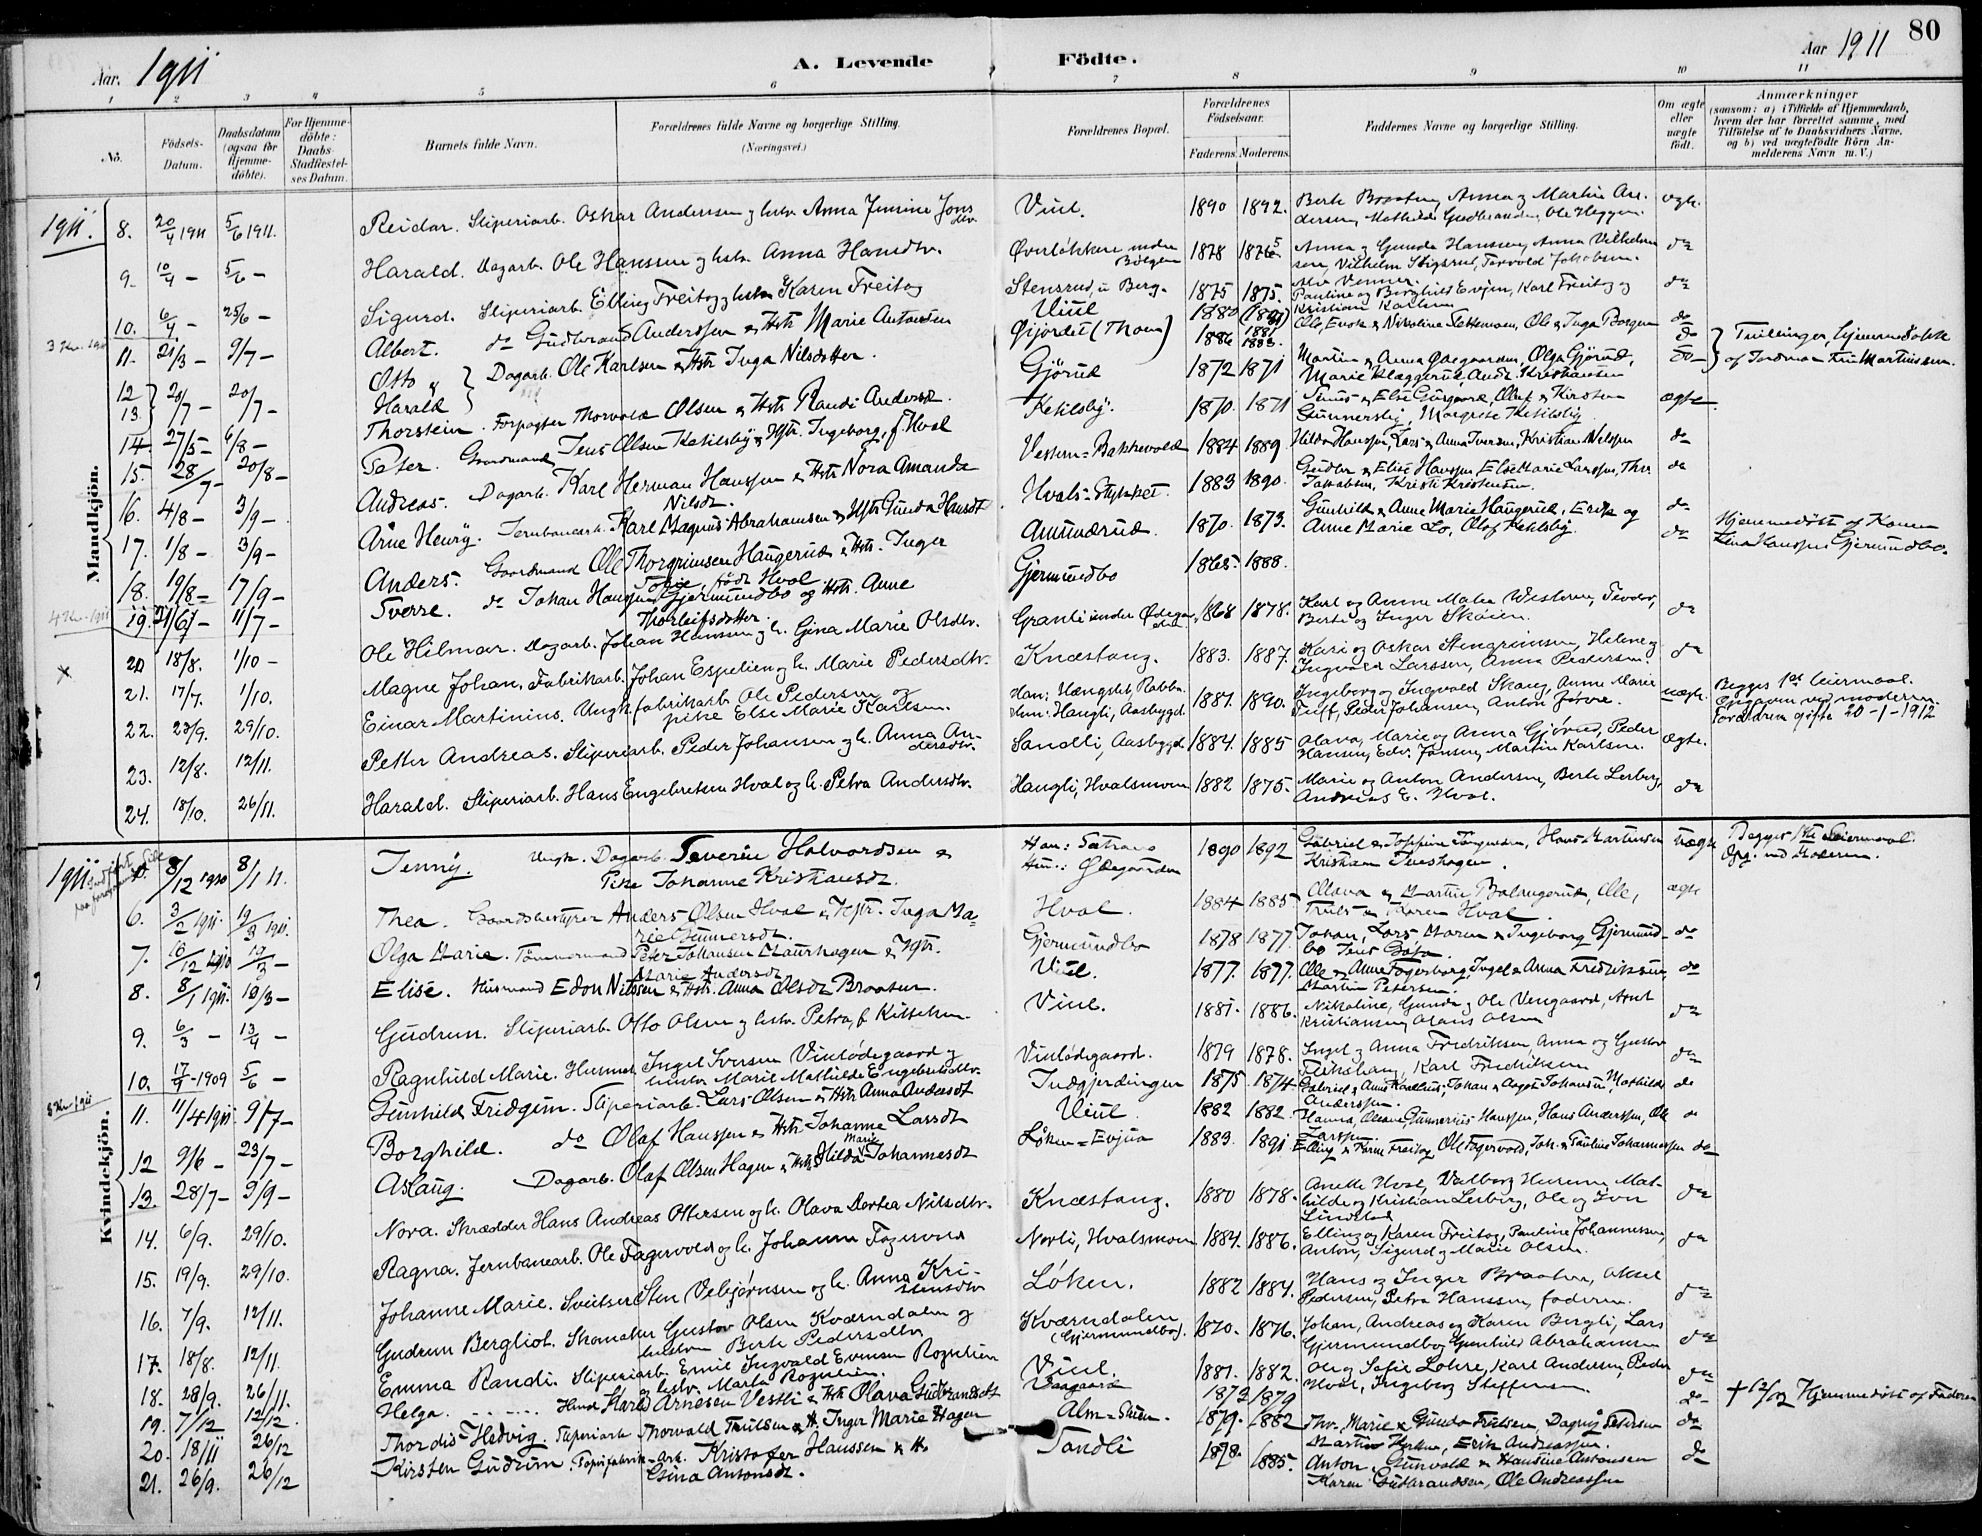 80
Aar. 1911
A. Levende Födte.
Aar 1911
1 2 3 4 5 6 7 8 9 10 11
No.
Födsels-Datum.
Daabsdatum (ogsaa for Hjemme-döbte).
For Hjemme-döbte: Daabs-Stadfæstel-ses Datum.
Barnets fulde Navn.
Forældrenes fulde Navne og borgerlige Stilling.
(Næringsvei.)
Forældrenes Bopæl.
Forældrenes Födselsaar.
Faderens. Moderens.
Faddernes Navne og borgerlige Stilling.
Om ægte eller uægte födt.
Anmærkninger
(saasom: a) i Tilfælde af Hjemmedaab, hvem der har forrettet samme, med Tilföielse af to Daabsvidners Navne, og b) ved uægtefödte Börn An-melderens Navn m. V.)
Mandkjön.
1911. 8. 20/4 1911 5/6 1911. Reidar. Sliperiarb. Oskar Andersen og hstr. Anna Jensine Jons dtr. Viul. 1890 1892. Berte Braaten, Anna og Martin An-dersen, Mathilde Gudbrandsen, Ole Heggen. ægte.
9. 10/4 – 5/6 – Harald. Dagarb. Ole Hanssen og hstr. Anna Hansdtr. Øverløkken under Bølgen 1878 1875 Anna og Gunda Hanssen, Anna Vilhelm-sen, Vilhelm Stigsrud, Torvald Jakobsen. do
10. 6/4 – 25/6 – Sigurd. Sliperiarb. Elling Freitog og hstr. Karen Freitog Stensrud, u. Berg. 1875 1875. Pauline og Borghild Evjen, Karl Freitog og Kristian Karlsen do
3 Kv. 1911 11. 21/3 – 9/7 – Albert. do Gudbrand Anderssen & Hstr. Marie Antonsen Viul 1880 (1881) do
12 13. 20/7 – 20/7 – Otto & Harald Dagarb. Ole Karlsen & Hstr. Inga Nilsdatter. Øijordet 1886 do Tvillinger, hjemmedøbte af Jordmor Martinussen.
14. 27/5 – 6/8 – Thorstein. Forpagter Thorvald Olsen & Hstr. Randi Andersd. Gjørud 1872 1871 Martin & Anna Ødegaarden, Olga Gjørud, Marie Klæggerud, Andr. Kristiansen do
15. 28/7 – 20/8 – Peter. Gaardmand Jens Olsen Ketilsby & Hstr. Ingeborg, f. Hval Ketilsby. 1870. 1871 ægte
16. 4/8 – 3/9 – Andreas. Dagarb. Karl Herman Hanssen & Hstr. Nora Amanda Nilsdt. Vestern=Bakkevold 1884 1889. Hilda Hanssen, Lars & Anna Iversen, Kristian Nilssen do
17. 1/8 – 3/9 – Arne Henry. Jernbanearb. Karl Magnus Abrahamsen & Hstr. Gunda Hansdt Hvals=Stykket. 1883 1890. do
18. 19/8 – 17/9 – Anders. Gaardmand Ole Thorgrimsen Haugerud & Hstr. Inger Sofie, født Hval Amundrud. 1870. 1873. Gunhild & Anne Marie Haugerud, Erik og Anne Marie Lo, Olaf Ketilsby. do
4 Kv. 1911 19. 21/6 – 11/7 – Sverre. do Johan Hansen Gjermundbo og Hstr. Anne Thorleifsdatter. Gjermundbo 1865 1888. do Hjemmedøbt af Karen Hanssen Gjermundbo.
20 18/8. 1/10 – Ole Hilmar. Dagarb. Johan Hanssen og h. Gina Marie Olsdtr. Granli under Ødegaarden 1868 1878. Karl og Anne Malia Western, Teodor, Berte og Inger Skoien. do
21. 17/7. 1/10. Magne Johan. Fabrikarb. Johan Espelien og h. Marie Pedersdtr. Knæstang. 1883. 1887. Kari og Oskar Stengrimsen, Helene og Ingvald Larssen, Anna Pedersen. do
22. 23/9. 29/10. Einar Martinius. Ungk. fabrikarb. Ole Pedersen og pike Else Marie Karlsen. Han: Hengslet, Rabba. Hun: Haugli, Aasbygd. 1881. 1890. Ingeborg og Ingvald Skaug, Anne Marie Tuff, Peder Johansen, Anton Jørve. uægte. Begges 1ste leiermaal. Opgaven ved moderen. Forældrene gifte 20-1-1912
23. 12/8. 12/11. Petter Andreas. Sliperiarb. Peder Johansen og h. Anna An-dersdtr. Sandli, Aasbygd. 1884. 1885 Olava, Marie og Anna Gjørud, Peder Hansen, Edv. Jansen, Martin Karlsen. ægte.
24. 18/10. 26/11. Harald. Sliperiarb. Hans Engebretsen Hval og h. Petra Andersdtr. Haugli, Hvalsmoen 1882 1875. Marie og Anton Andersen, Berte Lerberg, Andreas E. Hval. do
Kvindekjön.
1911 5. 8/12 1910 8/1 11. Jenny. Ungk. Dagarb. Severin Halvordsen & Pike Johanne Kristiansdt. Han: Sætrang Hun: Ødegaarden 1890 1892 Gabriel & Josefine Jørgensen, Hans Martinsen Kristian Tveshagen. uægte Begges 1ste Leiermaal. Opg. ved Moderen.
6. 3/2 1911. 19/3 1911. Thea. Gaardsbestyrer Anders Olsen Hval & Hstr. Inga Ma-rie Gunnersdt. Hval. 1884 1885 Truls & Karen Hval. ægte
7. 10/12 1910 19/3 – Olga Marie. Tømmermand Peter Johansen Maurhagen & Hstr. Marie Andersdt Gjermundbo 1878 1877. Johan, Lars Maren & Ingeborg Gjermund-bo do
8. 8/1 1911. 19/3 – Elise. Husmand Edon Nilssen & Hstr. Anna Olsdt Braaten. Viul. 1877. 1877. Ole & Anne Fagerborg, Ingel & Anna Fredriksen, Martin Petersen. do
9. 6/3 – 13/4 – Gudrun. Sliperiarb. Otto Olsen og hstr. Petra, f. Kittelsen. Viul. 1881. 1886. Nikoline, Gunda og Ole Vengaard, Arnt Kristiansen, Olaus Olsen do
10. 17/9 – 1909 5/6 – Ragnhild Marie. Husmd. Ingel Iversen Viulødegaard og hustr. Marie Mathilde Engebretsdtr. Viulødegaard. 1879 1878. Ingel og Anna Fredriksen Anna og Gustav Fekshaug, Karl Fredriksen do
11. 11/4 1911 9/7 – Gunhild Fridgun. Sliperiarb. Lars Olsen & Hstr. Anna Andersdt Indgjerdingen 1875 1874. do
12 9/6 – 23/7 – Borghild. do Olaf Hanssen & Hstr. Johanne Larsdt Viul. 1882 1882. Hanna, Olava, Gunnerius Hanssen, Hans Anderssen, Ole Larssen do
13. 28/7 – 3/9 – Aslaug. Dagarb. Olaf Olsen Hagen & Hstr. Hilda Marie Johannesdt Løken=Evjua 1883. 1891 Elling & Karen Freitog, Ole Fagervold, Joh. & Pauline Johannessen do
14. 6/9. 29/10. Nora. Skrædder Hans Andreas Ottersen og h. Olava Dortea Nilsdtr. Knæstang. 1880 1878. Anette Hval, Valborg Hurum, Mat-hilde og Kristian Lerberg, Ole og Iver Lindstad do
15. 19/9. 29/10. Ragna. Jernbanearb. Ole Fagervold og h. Johanne Fagervold Norli, Hvalsmoen 1884. 1886. Elling og Karen Freitog, Pauline Johannessen, Anton, Sigurd og Marie Olsen. do
16. 7/9. 12/11. Johanne Marie. Sveitser Sten Vebjørnsen og h. Anna Kri-stensdtr Løken. 1882 1884. Hans og Inger Braaten, Aksel Pedersen, Petra Hanssen, faderen. do
17. 18/8. 12/11. Gudrun Bergliot. Skomaker Gustav Olsen Kværndalen og hustru Berte Pedersdtr. Kværndalen (Gjermundbo). 1870. 1876. Johan, Andreas og Karen Bergli, Lars Gjermundbo, Gunhild Abrahamsen do
18. 28/9. 26/11. Emma Randi. Sliperiarb. Emil Ingvald Evensen Rognlien og hstr. Marta Rognlien. Viul. 1881. 1882. Ole og Sofie Lohre, Karl Andersen, Peder Hval, Ingeborg Steffensen. do
19. 7/12. 12/12. Helga. Harald Arnesen Vestli & Hstr. Olava Gudbrandsdt 1873 1879 do † Hjemmedøbt af Faderen
20. 18/11 26/12 Thordis Hedvig. Sliperiarb Thorvald Trulsen & H. Inger Marie Hagen Alm=Skien. 1879. 1882 Thv. Marie & Gunda Trulsen, Dagny Petersen Erik Andreassen. do
21. 26/9. 26/12 Kirsten Gudrun. Papirfabrik-Arb. Kristofer Hanssen & H. Gina Antonsdt. Sandli 1878. 1885. Anton, Gunvald & Hansine Antonsen Karen Gudbrandsen, Ole Andreassen do